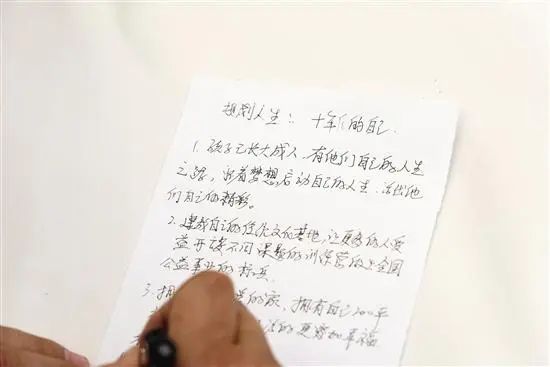 规划人生：十年后的自己
1. 孩子已长大成人，有他们自己的人生
之路，沿着梦想启动自己的人生，活出他
们自己的精彩。
2. 建成自己的传统文化基地，让更多的人受
益 开设不同课题的训练营 成立全国
公益事业的标兵
3. 拥 的家，拥有自己200平
的更幸福